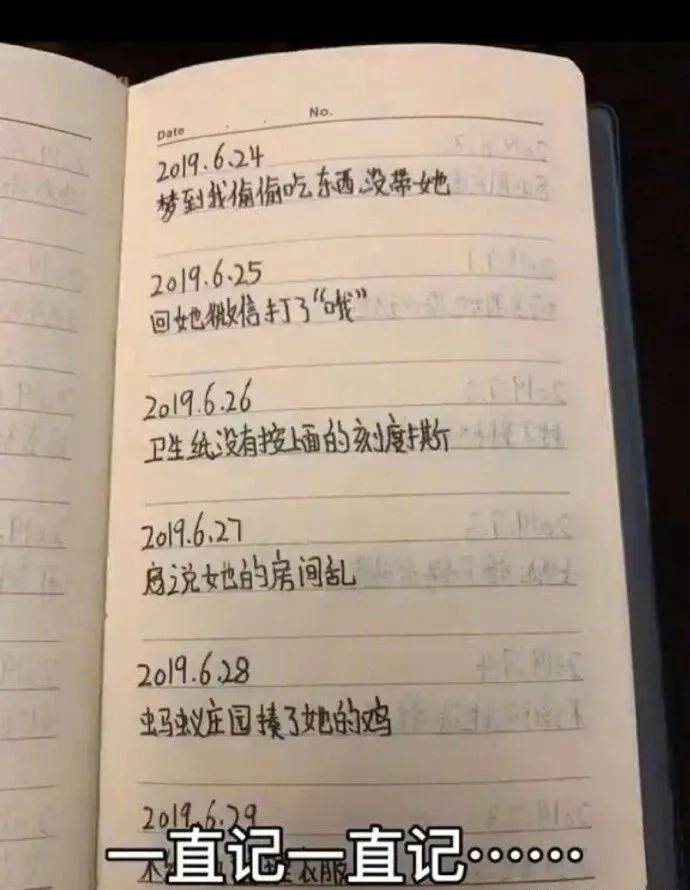 Date . . No.
2019.6.24
梦到我偷偷吃东西没带她
2019.6.25
回她微信打了“哦”
2019.6.26
卫生纸没有按上面的刻度撕
2019.6.27
说她的房间乱
2019.6.28
蚂蚁庄园揍了她的鸡
2019.6.29
一直记一直记……
衣服